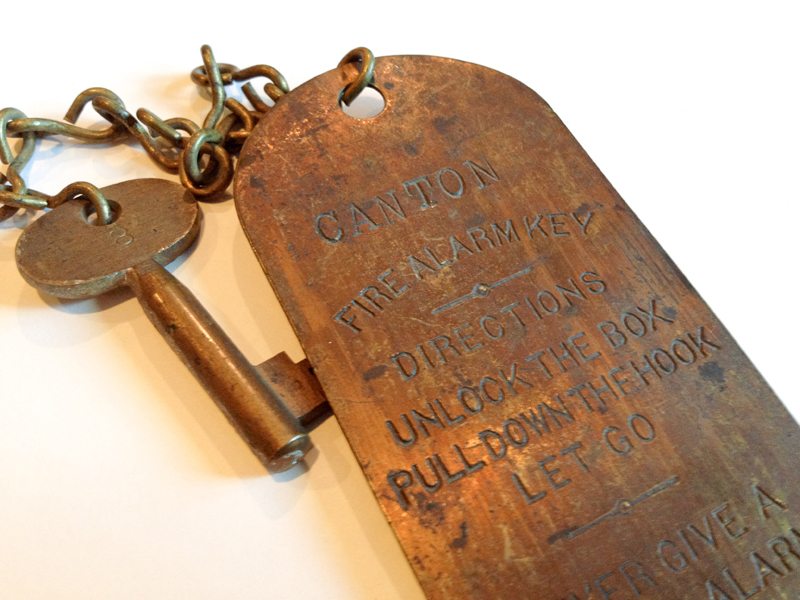 CANTON
FIRE ALARM KEY
DIRECTIONS
UNLOCK THE BOX
PULL DOWN THE HOOK
LET GO
GIVE A
ALARM
8